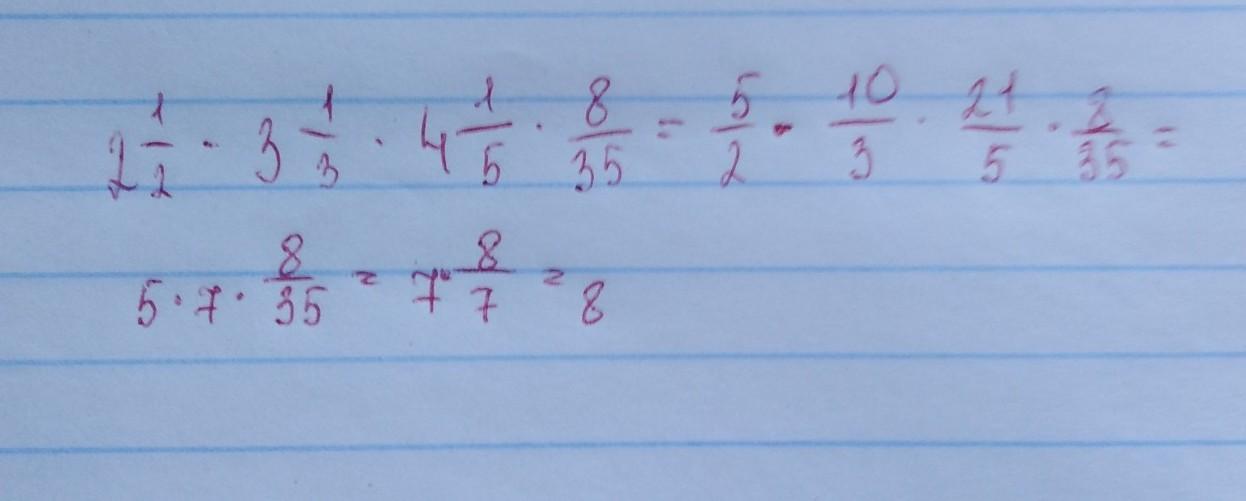 2 1/2 · 3 1/3 · 4 1/5 · 8/35 = 5/2 · 10/3 · 21/5 · 8/35 =
5 · 7 · 8/35 = 7 · 8/7 = 8